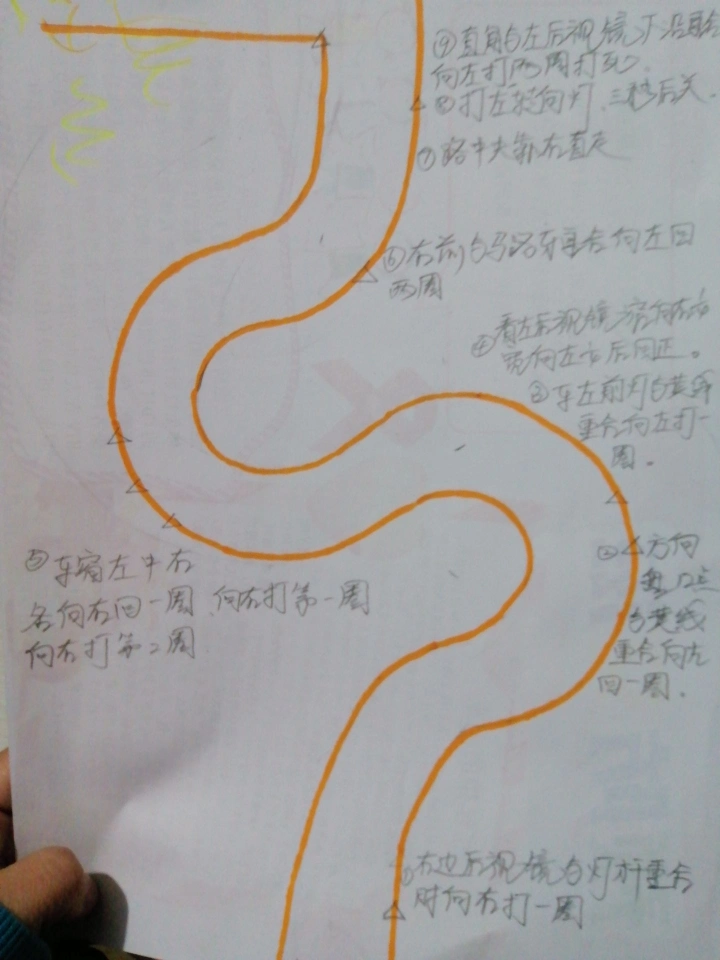 ⑨直角与左后视镜下沿重合
向左打两周打死.
⑧打左转向灯.三秒后关.
⑦路中央靠右直走
⑥右前与马路牙重合向左回
两圈
④看左后视镜窄向右
宽向左
后回正。
③车左前灯与黄线
重合向左打一
圈.
⑤车窗左中右
各向右回一圈.向右打第一圈
向右打第2圈
②方向
盘12点
与黄线
重合向左
回一圈.
①右边后视镜与灯杆重合
时向右打一圈